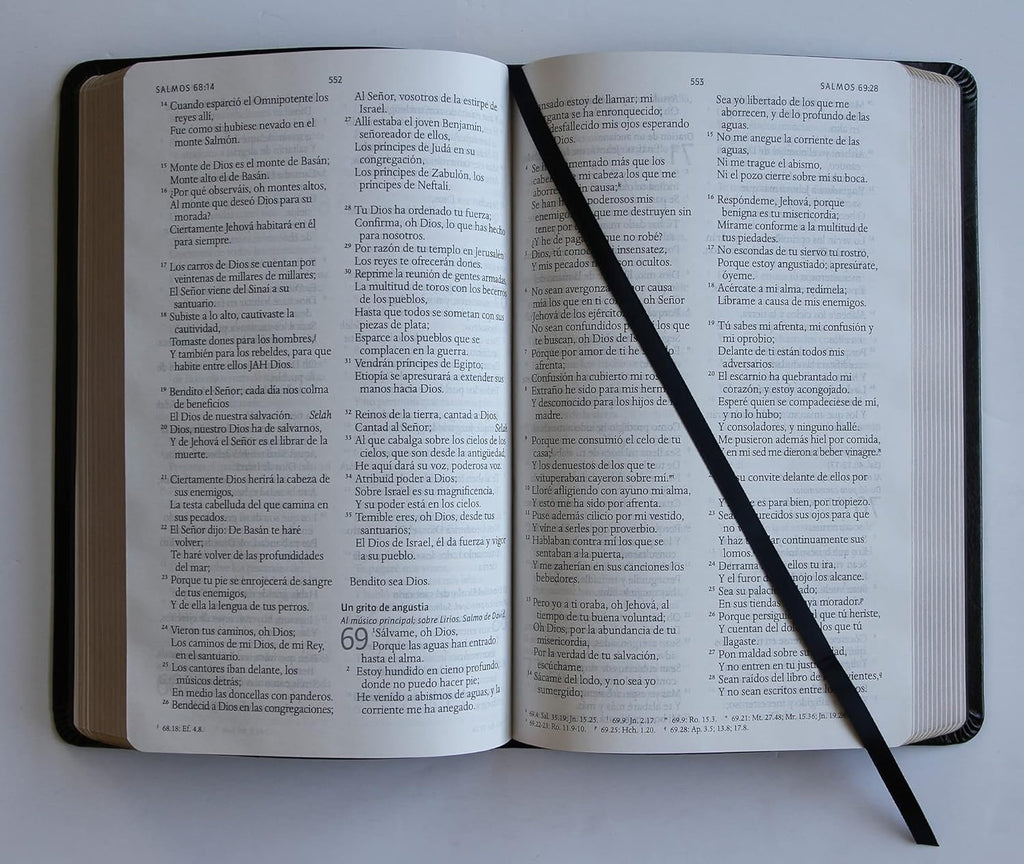 SALMOS 68:14
552
14 Cuando esparció el Omnipotente los
reyes allí,
Fue como si hubiese nevado en el
monte Salmón.
15 Monte de Dios es el monte de Basán;
Monte alto el de Basán.
16 ¿Por qué observáis, oh montes altos,
Al monte que deseó Dios para su
morada?
Ciertamente Jehová habitará en él
para siempre.
17 Los carros de Dios se cuentan por
veintenas de millares de millares;
El Señor viene del Sinaí a su
santuario.
18 Subiste a lo alto, cautivaste la
cautividad,
Tomaste dones para los hombres,
Y también para los rebeldes, para que
habite entre ellos JAH Dios.
19 Bendito el Señor; cada día nos colma
de beneficios
El Dios de nuestra salvación. Selah
20 Dios, nuestro Dios ha de salvarnos,
Y de Jehová el Señor es el librar de la
muerte.
21 Ciertamente Dios herirá la cabeza de
sus enemigos,
La testa cabelluda del que camina en
sus pecados.
22 El Señor dijo: De Basán te haré
volver;
Te haré volver de las profundidades
del mar;
23 Porque tu pie se enrojecerá de sangre
de tus enemigos,
Y de ella la lengua de tus perros.
24 Vieron tus caminos, oh Dios;
Los caminos de mi Dios, de mi Rey,
en el santuario.
25 Los cantores iban delante, los
músicos detrás;
En medio las doncellas con panderos.
26 Bendecid a Dios en las congregaciones;
68.18: Ef. 4.8.
Al Señor, vosotros de la estirpe de
Israel.
27 Allí estaba el joven Benjamín,
señoreador de ellos,
Los príncipes de Judá en su
congregación,
Los príncipes de Zabulón, los
príncipes de Neftalí.
28 Tu Dios ha ordenado tu fuerza;
Confirma, oh Dios, lo que has hecho
para nosotros.
29 Por razón de tu templo en Jerusalén
Los reyes te ofrecerán dones.
30 Reprime la reunión de gentes armadas,
La multitud de toros con los becerros
de los pueblos,
Hasta que todos se sometan con sus
piezas de plata;
Esparce a los pueblos que se
complacen en la guerra.
31 Vendrán príncipes de Egipto;
Etiopía se apresurará a extender sus
manos hacia Dios.
32 Reinos de la tierra, cantad a Dios,
Cantad al Señor; Selah
33 Al que cabalga sobre los cielos de los
cielos, que son desde la antigüedad;
He aquí dará su voz, poderosa voz.
34 Atribuid poder a Dios;
Sobre Israel es su magnificencia,
Y su poder está en los cielos.
35 Temible eres, oh Dios, desde tus
santuarios;
El Dios de Israel, él da fuerza y vigor
a su pueblo.
Bendito sea Dios.
Un grito de angustia
Al músico principal; sobre Lirios. Salmo de David.
69 1 Sálvame, oh Dios,
Porque las aguas han entrado
hasta el alma.
2 Estoy hundido en cieno profundo,
donde no puedo hacer pie;
He venido a abismos de aguas, y la
corriente me ha anegado.
553
SALMOS 69:28
estoy de llamar; mi
se ha enronquecido;
desfallecido mis ojos esperando
Dios.
4 Se aumentado más que los
de mi cabeza los que me
sin causa;
Se han poderosos mis
enemigos que me destruyen sin
tener por
¿Y he de que no robé?
Dios, tú insensatez,
Y mis pecados son ocultos.
6 No sean avergonzados por causa
mía los que en ti oh Señor
Jehová de los ejércitos
No sean confundidos los que
te buscan, oh Dios de
7 Porque por amor de ti he
afrenta;
Confusión ha cubierto mi
8 Extraño he sido para mis
Y desconocido para los hijos de
madre.
9 Porque me consumió el celo de tu
casa;
Y los denuestos de los que te
vituperaban cayeron sobre mí.
10 Lloré afligiendo con ayuno mi alma,
Y esto me ha sido por afrenta.
11 Puse además cilicio por mi vestido,
Y vine a serles por proverbio.
12 Hablaban contra mí los que se
sentaban a la puerta,
Y me zaherían en sus canciones los
bebedores.
13 Pero yo a ti oraba, oh Jehová, al
tiempo de tu buena voluntad;
Oh Dios, por la abundancia de tu
misericordia,
Por la verdad de tu salvación,
escúchame.
14 Sácame del lodo, y no sea yo
sumergido;
Sea yo libertado de los que me
aborrecen, y de lo profundo de las
aguas.
15 No me anegue la corriente de las
aguas,
Ni me trague el abismo,
Ni el pozo cierre sobre mí su boca.
16 Respóndeme, Jehová, porque
benigna es tu misericordia;
Mírame conforme a la multitud de
tus piedades.
17 No escondas de tu siervo tu rostro,
Porque estoy angustiado; apresúrate,
óyeme.
18 Acércate a mi alma, redímela;
Líbrame a causa de mis enemigos.
19 Tú sabes mi afrenta, mi confusión y
mi oprobio;
Delante de ti están todos mis
adversarios.
20 El escarnio ha quebrantado mi
corazón, y estoy acongojado.
Esperé quien se compadeciese de mí,
y no lo hubo;
Y consoladores, y ninguno hallé.
21 Me pusieron además hiel por comida,
Y en mi sed me dieron a beber vinagre.
su convite delante de ellos por
es para bien, por tropiezo.
23 Sean sus ojos para que
no
Y haz continuamente sus
lomos.
24 Derrama ellos tu ira,
Y el furor de enojo los alcance.
25 Sea su palacio
En sus tiendas morador.
26 Porque que tú heriste,
Y cuentan del los que tú
llagaste.
27 Pon maldad sobre su maldad,
Y no entren en tu
28 Sean raídos del libro de vivientes,
Y no sean escritos entre los justos.
69.4: Sal. 35:19; Jn. 15.25. 69.9: Jn. 2.17. 69.9: Ro. 15.3. 69.21: Mt. 27.48; Mr. 15.36; Jn. 19.
69.22-23: Ro. 11.9-10. 69.25: Hch. 1.20. 69.28: Ap. 3.5; 13.8; 17.8.